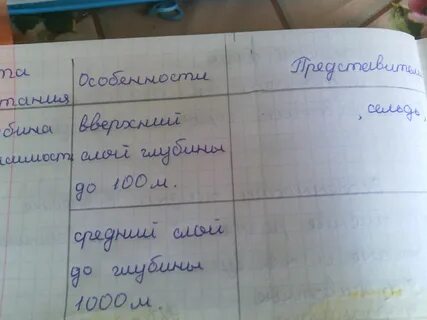 та
Особенности
Представители
тания
бина
вверхний
, сельдь,
висимость
слой глубины
до 100 м.
средний слой
до глубины
1000 м.